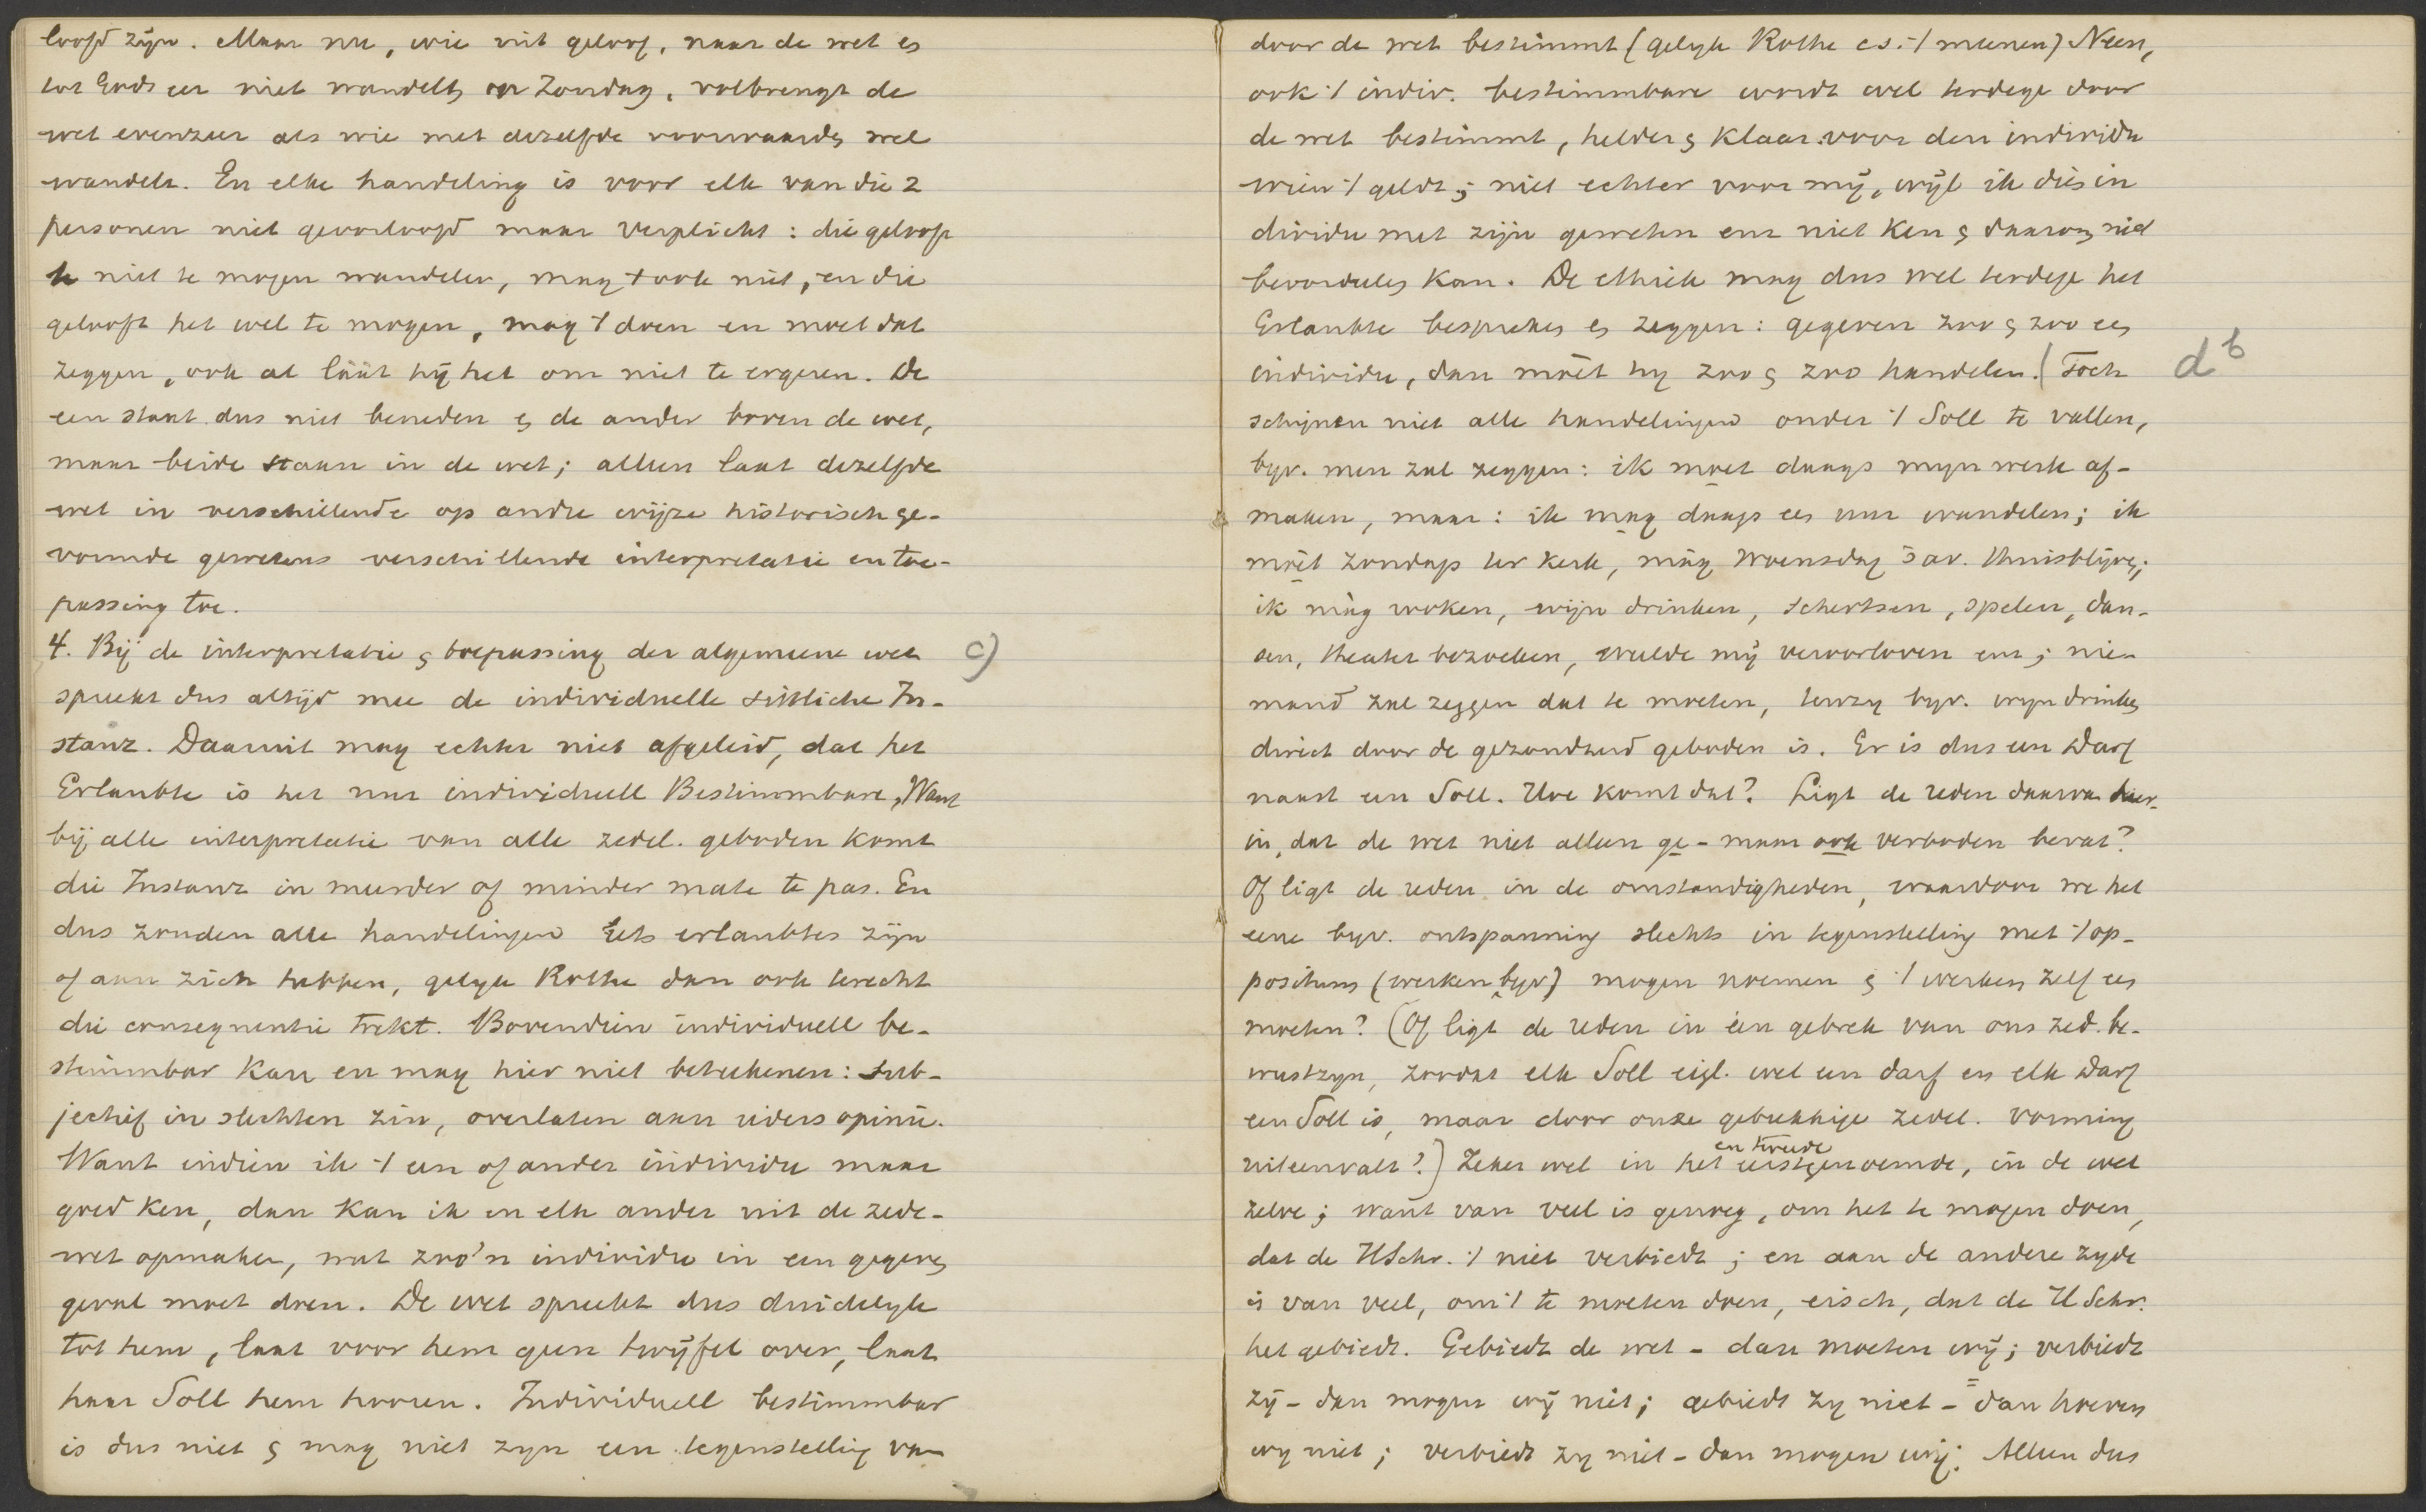 loofd zijn. Maar nu, wie uit geloof, naar de wet en
tot Gods eer niet wandelt op Zondag, volbrengt de
wet evenzeer als wie met dezelfde voorwaarde wel
wandelt. En elke handeling is voor elk van die 2
personen niet geoorloofd maar verplicht: die gelooft
te niet te mogen wandelen, mag 't ook niet, en die
gelooft het wel te mogen, mag 't doen en moet dat
zeggen, ook al láát hij het om niet te ergeren. De
een staat dus niet beneden & de ander boven de wet,
maar beide staan in de wet; alleen laat dezelfde
wet in verschillende op andre wijze historisch ge-
vormde gewetens verschillende interpretatie en toe-
passing toe.
4. Bij de interpretatie & toepassing der algemeene wet c)
spreekt dus altijd mee de individuelle sittliche In-
stanz. Daaruit mag echter niet afgeleid, dat het
Erlaubte is het nur individuell Bestimmbare, Want
bij alle interpretatie van alle zedel. geboden komt
die Instanz in meerder of minder mate te pas. En
dus zouden alle handelingen iets erlaubtes zijn
of aan zich hebben, gelijk Rothe dan ook terecht
die consequentie trekt. Bovendien individuell be-
stimmbar kan en mag hier niet beteekenen: sub-
jectief in slechten zin, overlaten aan ieders opinie.
Want indien ik 't een of ander individu maar
goed ken, dan kan ik en elk ander uit de zede-
wet opmaken, wat zoo'n individu in een gegeven
geval moet doen. De wet spreekt dus duidelijk
tot hem, laat voor hem geen twijfel over, laat
haar Soll hem hooren. Individuell bestimmbar
is dus niet & mag niet zijn een tegenstelling van
door de wet bestimmt (gelijk Rothe c.s. 't meenen) Neen,
ook 't indiv. bestimmbare wordt wel terdege door
de wet bestimmt, helder & klaar voor den individu
wien 't geldt; niet echter voor mij, wijl ik dis in
dividu met zijn geweten enz niet ken & daarom niet
beoordeelen kan. De ethiek mag dus wel terdege het
Erlaubte bespreken en zeggen: gegeven zoo & zoo een
individu, dan móet hij zoo & zoo handelen. (Toch db
schijnen niet alle handelingen onder 't Soll te vallen,
bijv. men zal zeggen: ik moet daags mijn werk af-
maken, maar: ik mag daags een uur wandelen; ik
móet Zondags ter kerk, mág Woensdag 's av. thuisblijven;
ik mág rooken, wijn drinken, schertsen, spelen, dan-
sen, theater bezoeken, weelde mij veroorloven enz; nie-
mand zal zeggen dat te moeten, tenzij bijv. wijn drinken
direct door de gezondheid geboden is. Er is dus een Darf
naast een Soll. Hoe komt dat? Ligt de reden daarvan hier-
in, dat de wet niet alleen ge- maar ook verboden bevat?
Of ligt de reden in de omstandigheden, waardoor we het
eene bijv. ontspanning slechts in tegenstelling met 't op-
positum (werken bijv) mogen noemen & 't werken zelf een
moeten? (Of ligt de reden in een gebrek van ons zed. be-
wustzijn, zoodat elk Soll eigl. wel een darf en elk Darf
een Soll is, maar door onze gebrekkige zedel. vorming
uiteenvalt?) Zeker wel in het eerstgenoemde, in de wet
en tweede
zelve; want van veel is genoeg, om het te mogen doen,
dat de HSchr. 't niet verbiedt; en aan de andere zijde
is van veel, om 't te moeten doen, eisch, dat de HSchr.
het gebiedt. Gebiedt de wet - dan moeten wij; verbiedt
zij - dan mogen wij niet; gebiedt zij niet - dan hoeven
wij niet; verbiedt zij niet - dan mogen wij. Alleen dus